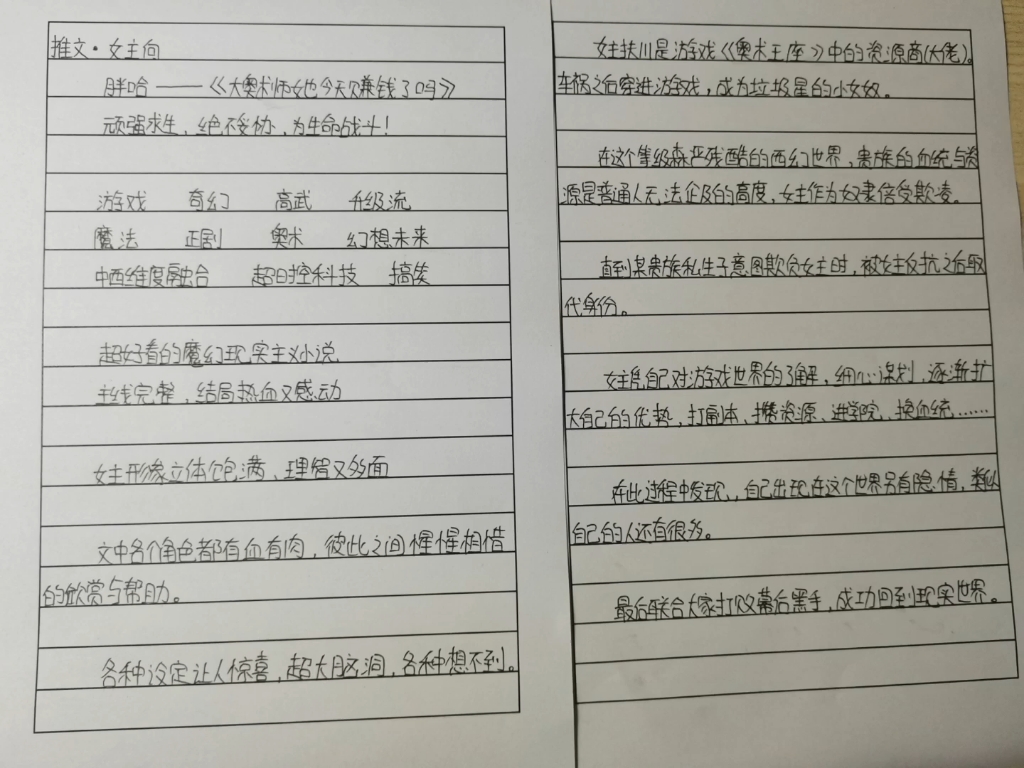 推文·女主向
胖哈——《大奥术师她今天赚钱了吗》
顽强求生，绝不妥协，为生命战斗！
游戏 奇幻 高武 升级流
魔法 正剧 奥术 幻想未来
中西维度融合 超时控科技 搞笑
超好看的魔幻现实主义小说
主线完整，结局热血又感动
女主形象立体饱满、理智又多面
文中各个角色都有血有肉，彼此之间惺惺相惜
的欣赏与帮助。
各种设定让人惊喜，超大脑洞，各种想不到。
女主扶川是游戏《奥术王座》中的资源商(大佬)。
车祸之后穿进游戏，成为垃圾星的小女奴。
在这个等级森严残酷的西幻世界，贵族的血统与资
源是普通人无法企及的高度，女主作为奴隶倍受欺凌。
直到某贵族私生子意图欺负女主时，被女主反抗之后取
代身份。
女主凭自己对游戏世界的了解，细心谋划，逐渐扩
大自己的优势，打副本、攒资源、进学院、换血统……
在此过程中发现，自己出现在这个世界另有隐情，类似
自己的人还有很多。
最后联合大家打败幕后黑手，成功回到现实世界。